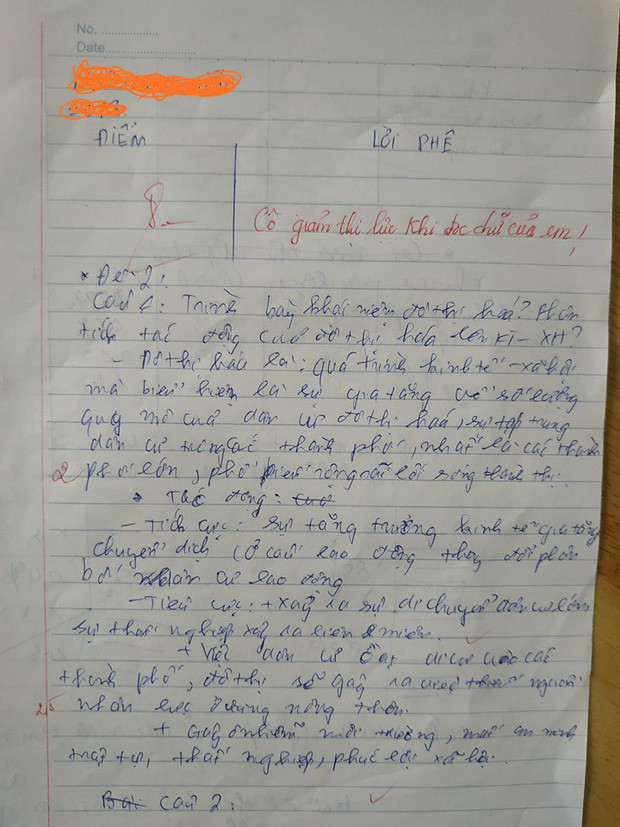 No. ..................
Date..............................
ĐIỂM
LỜI PHÊ
8.
Cô giảm thị lực khi đọc chữ của em!
* Đề 2:
Câu 4: Trình bày khái niệm đô thị hoá? Phân
tích tác động của đô thị hóa lên KT - XH?
- Đô thị hóa là: quá trình kinh tế - xã hội
mà biểu hiện là sự gia tăng về số lượng
quy mô của dân cư đô thị hoá, sự tập trung
dân cư trong các thành phố, nhất là các thành
2 phố lớn, phổ biến rộng rãi lối sống thành thị.
* Tác động:
- Tích cực: sự tăng trưởng kinh tế gia tăng
chuyển dịch cơ cấu lao động thay đổi phân
bố dân cư lao động
- Tiêu cực: + xảy ra sự di chuyển dân cư lớn
sự thất nghiệp xảy ra liên miên.
+ Việc dân cư ồ ạt di cư vào các
thành phố, đô thị sẽ gây ra việc thiếu nguồn
2,5 nhân lực ở vùng nông thôn.
+ Gây ô nhiễm môi trường, mất an ninh
trật tự, thất nghiệp, phúc lợi xã hội.
Bài câu 2: